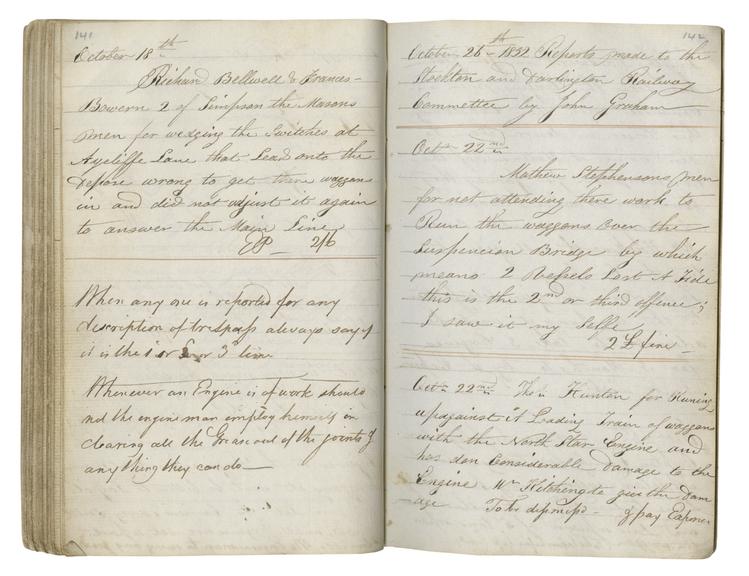 141
October 18th
Richard Bellwell & Frances
Bowern 2 of Simpson the Masons
men for wedging the Switches at
Aycliffe Lane that Lead onto the
depose wrong to get there waggons
in and did not adjust it again
to answer the Main Line
2/6
When any one is reported for any
description of trespass always say if
it is the 1 or 2 or 3 time
Whenever an Engine is of work should
not the engine man employ himself in
clearing all the Grease out of the joints &
any thing they can do
142
October 26th 1832 Reports made to the
Stockton and Darlington Railway
Committee by John Graham
Oct 22nd
Mathew Stephensons men
for not attending there work to
Run the waggons over the
Suspencion Bridge by which
means 2 Vessels Lost A Tide
this is the 2nd or third offence;
I saw it my selfe
2 £ fine
Oct 22nd Thos Hunton for Runing
up against A Leading Train of waggons
with the North Star Engine and
has don Considerable damage to the
Engine Wm Hitching to give the dam
age To be dismissd & pay Expences